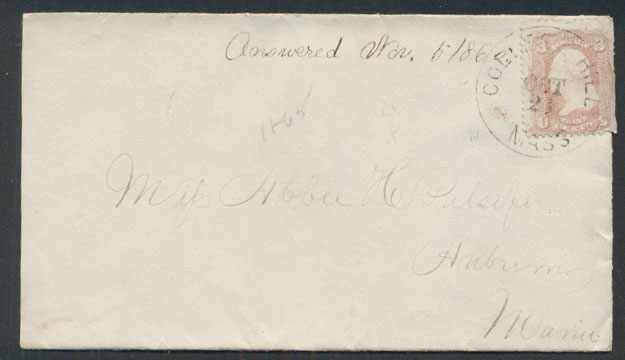 Answered Nov. 5 186
COLLEGE HILL
OCT
MASS
3 3
1865
Miss Abbie H. Pulsifer
Auburn
Maine